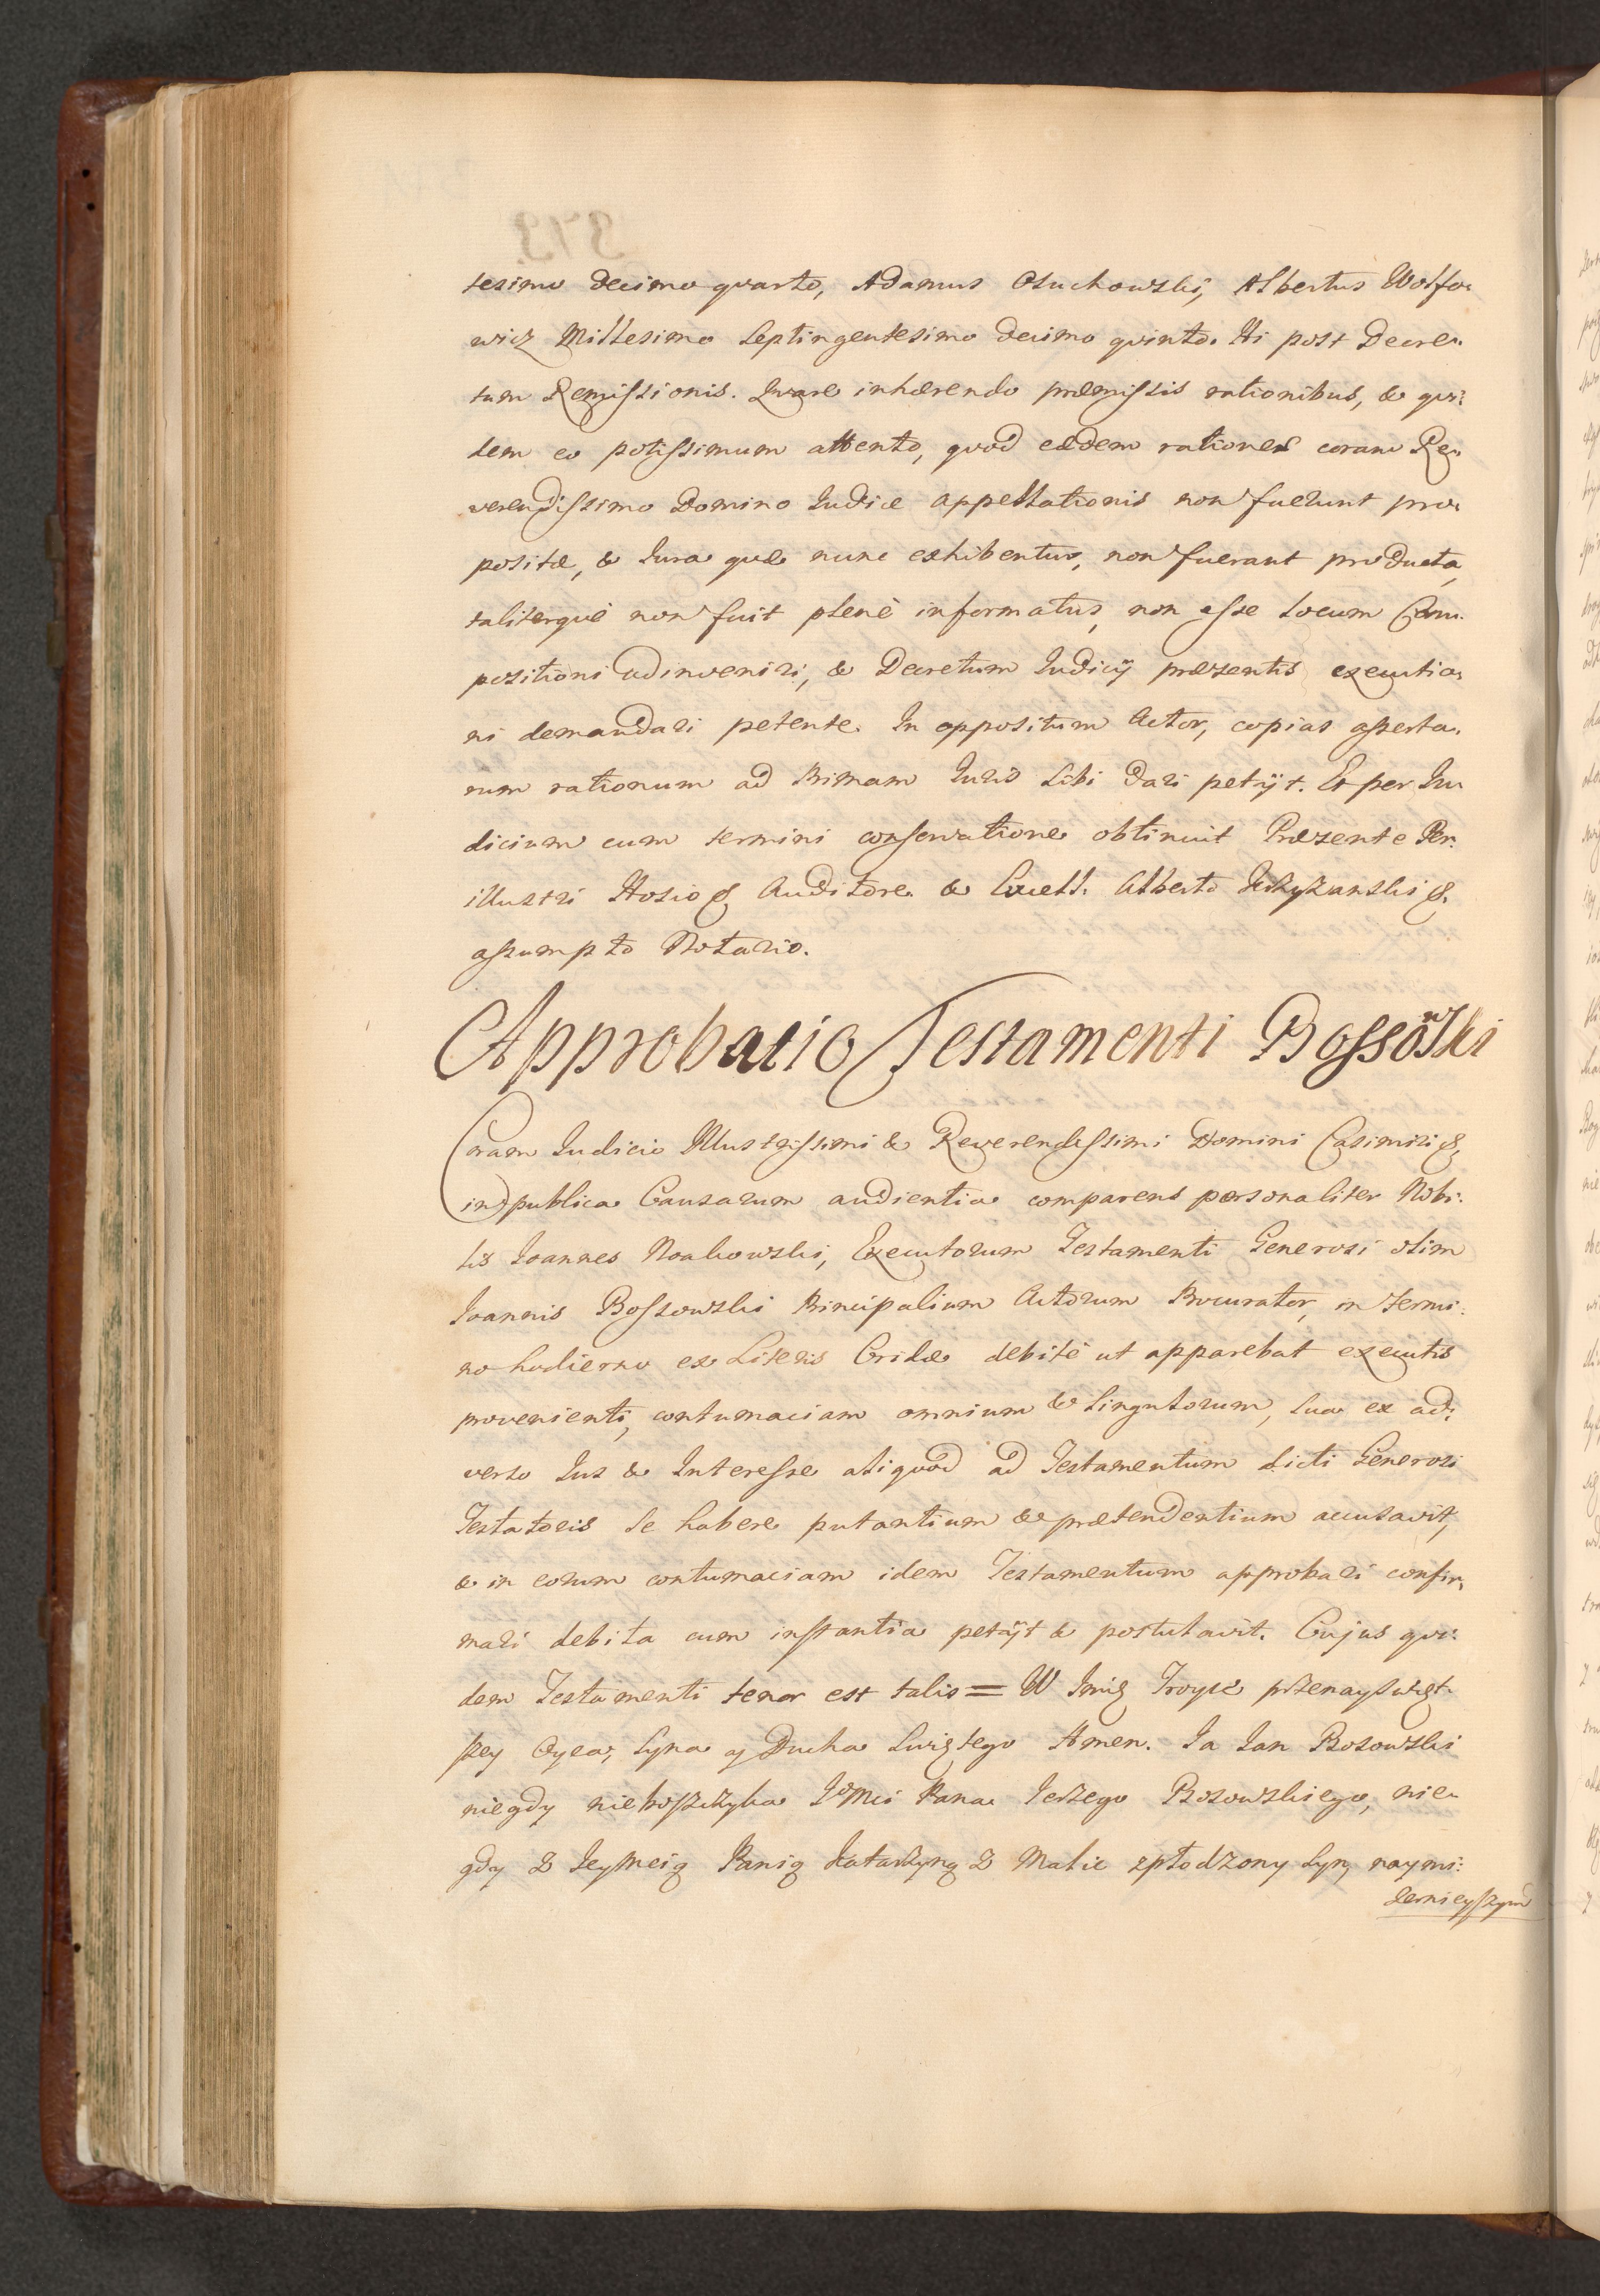 tesimo decimo quarto, Adamus Osuchowski, Albertus Wolfo-
wicz Millesimo Septingentesimo decimo quinto. Hi post Decre-
tum Remissionis. Quare inhærendo præmissis rationibus, & qui-
dem eo potissimum attento, quod eædem rationes coram Re-
verendissimo Domino Iudice appellationis non fuerunt pro-
positæ, & Iura quæ nunc exhibentur, non fuerant producta,
taliterque non fuit plenè informatus, non esse locum Com-
positioni adinveniri, & Decretum Iudicij præsentis executio-
ni demandari petente. In oppositum Actor, copias asserta-
rum rationum ad Primam Iuris sibi dari petijt. Et per Iu-
dicium cum termini conservatione obtinuit Præsente Per-
illustri Hosio & Auditore & Excell. Alberto &
assumpto Notario.
Approbatio Testamenti Bossowski
Coram Iudicio Illustrissimi & Reverendissimi Domini Casimiri &
in publica Causarum audientia comparens personaliter Nobi-
lis Ioannes Noakowski, Executorum Testamenti Generosi olim
Ioannis Bossowski Principalium Actorum Procurator, in termi-
no hodierno ex Literis Cridæ debitè ut apparebat executis
provenienti, contumaciam omnium & singulorum, sua ex ad-
verso Ius & Interesse aliquod ad Testamentum dicti Generosi
Testatoris se habere putantium & prætendentium accusavit,
& in eorum contumaciam idem Testamentum approbari confir-
mari debita cum instantia petijt & postulavit. Cujus qui-
dem Testamenti tenor est talis = W Imię Troyce przenayswięt-
szey Oyca, Syna y Ducha Swiętego Amen. Ia Ian Bosowski
niegdy nieboszczyka IMci Pana Ierzego Bosowskiego, nie-
gdy z Ieymcią Panią Katarzyną z Malic zpłodzony Syn, naymi-
zernieyszym